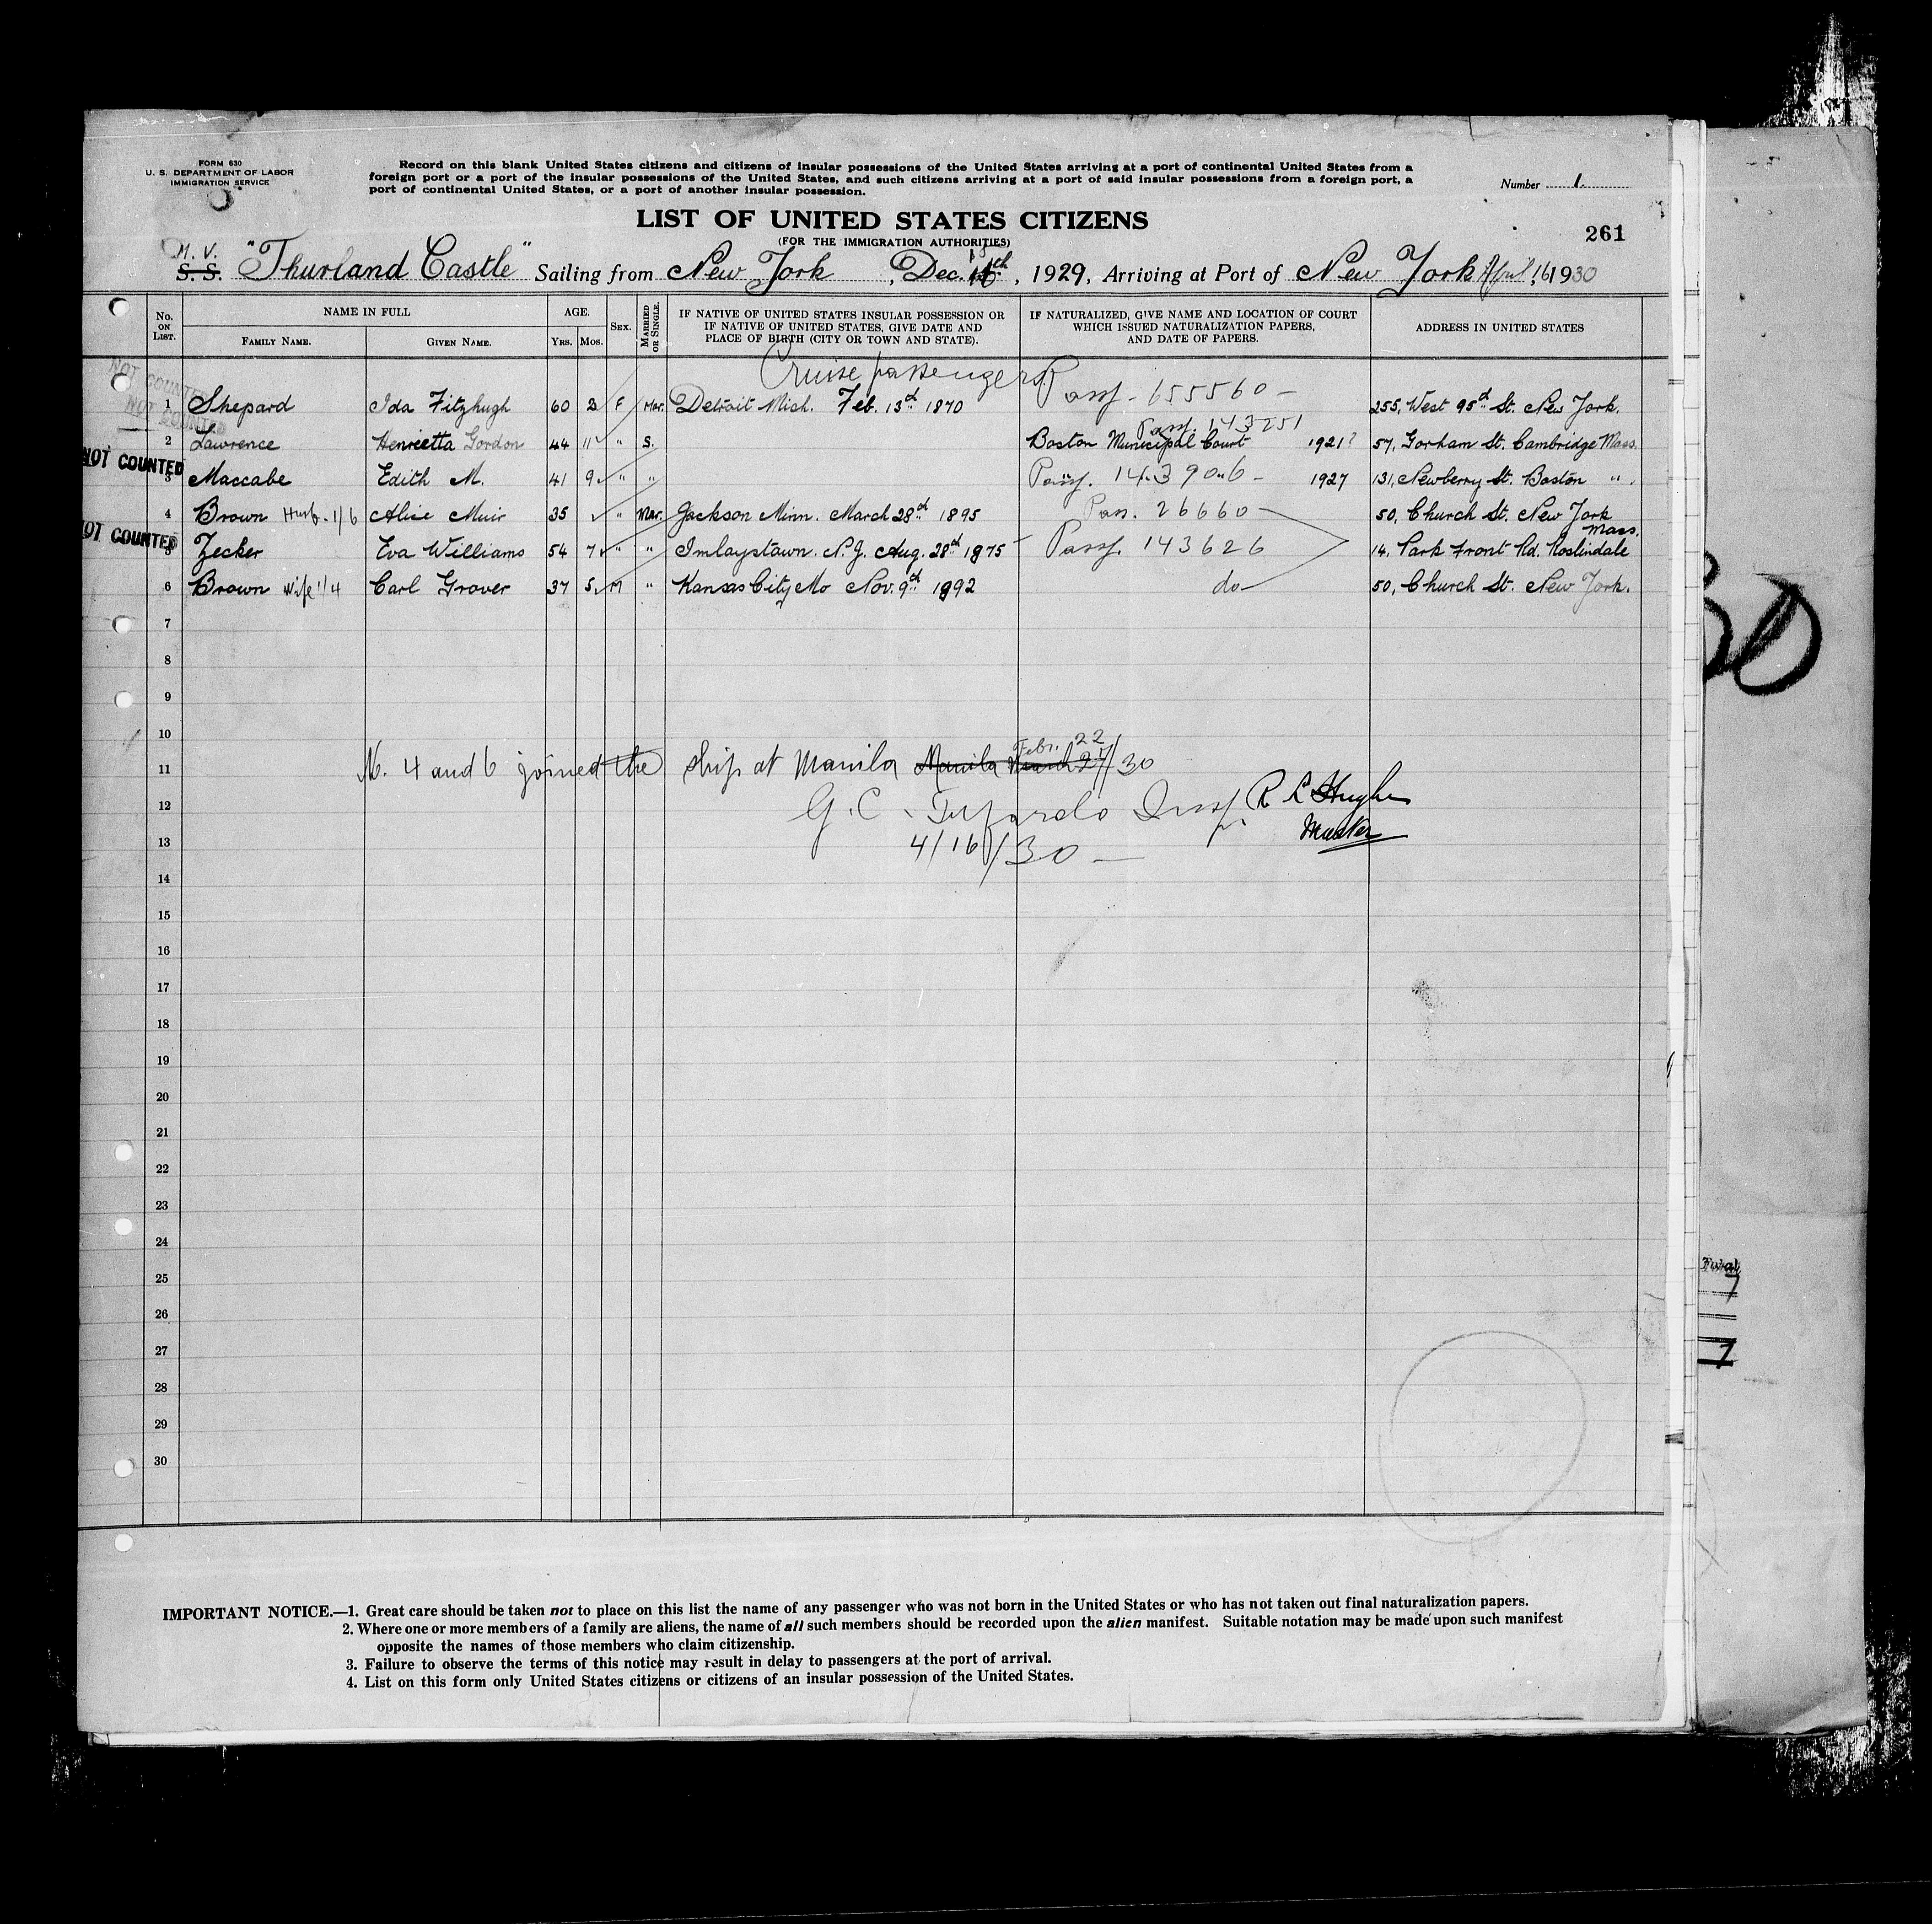 FORM 630
U. S. DEPARTMENT OF LABOR
IMMIGRATION SERVICE
Record on this blank United States citizens and citizens of insular possessions of the United States arriving at a port of continental United States from a
foreign port or a port of the insular possessions of the United States, and such citizens arriving at a port of said insular possessions from a foreign port, a
port of continental United States, or a port of another insular possession.
Number 1.
LIST OF UNITED STATES CITIZENS
(FOR THE IMMIGRATION AUTHORITIES)
261
M. V.
S. S. "Thurland Castle" Sailing from New York, Dec. 18th, 1929, Arriving at Port of New York April 16, 1930
No. ON LIST. NAME IN FULL AGE. SEX. MARRIED OR SINGLE. IF NATIVE OF UNITED STATES INSULAR POSSESSION OR IF NATIVE OF UNITED STATES, GIVE DATE AND PLACE OF BIRTH (CITY OR TOWN AND STATE). IF NATURALIZED, GIVE NAME AND LOCATION OF COURT WHICH ISSUED NATURALIZATION PAPERS, AND DATE OF PAPERS. ADDRESS IN UNITED STATES
FAMILY NAME. GIVEN NAME. YRS. MOS.
Cruise passengers
NOT COUNTED
NOT COUNTED
1 Shepard Ida Fitzhugh 60 2 F Mar. Detroit Mich. Feb. 13th 1870 Passp - 655560 - 255, West 95th St. New York.
Passp. 143251
2 Lawrence Henrietta Gordon 44 11 " S. Boston Municipal Court 1921? 57, Gorham St. Cambridge Mass.
NOT COUNTED
3 Maccabe Edith M. 41 9 " " Passp. 143906 - 1927 131, Newberry St. Boston ".
4 Brown Husb - 1/6 Alice Muir 35 " Mar. Jackson Minn. March 28th 1895 Pass. 26660 - 50, Church St. New York
NOT COUNTED
Mass.
5 Zecker Eva Williams 54 7 " " Imlaystown. N.J. Aug. 28th 1875 - Passp. 143626 14, Park Front Rd. Roslindale
6 Brown wife 1/4 Carl Grover 37 5 M " Kansas City Mo Nov. 9th 1892 do - 50, Church St. New York.
7
8
9
10
Febr. 22
11 No. 4 and 6 joined the ship at Manila Manila March 27/30
12 G. C. Insp. R L Hughes
Master
13 4/16/30 -
14
15
16
17
18
19
20
21
22
23
24
25
26
27
28
29
30
Total
7
7
IMPORTANT NOTICE.—1. Great care should be taken not to place on this list the name of any passenger who was not born in the United States or who has not taken out final naturalization papers.
2. Where one or more members of a family are aliens, the name of all such members should be recorded upon the alien manifest. Suitable notation may be made upon such manifest
opposite the names of those members who claim citizenship.
3. Failure to observe the terms of this notice may result in delay to passengers at the port of arrival.
4. List on this form only United States citizens or citizens of an insular possession of the United States.